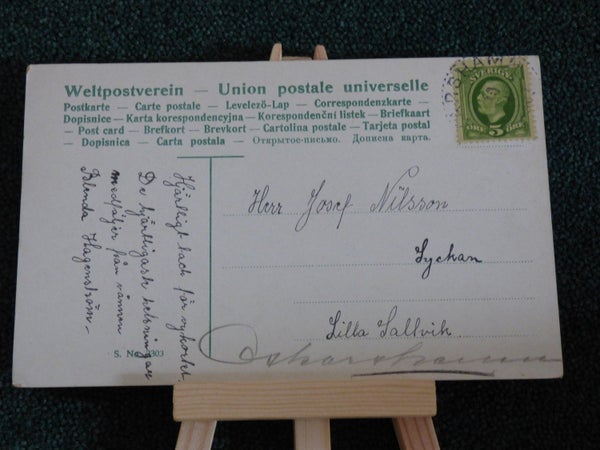 Weltpostverein — Union postale universelle
Postkarte — Carte postale — Levelező-Lap — Correspondenzkarte —
Dopisnice — Karta korespondencyjna — Korespondenční listek — Briefkaart
— Post card — Brefkort — Brevkort — Cartolina postale — Tarjeta postal
— Dopisnica — Carta postala — Открытое-письмо. Дописна карта.
SVERIGE
5
ÖRE ÖRE
Hjärtligt tack för vykortet.
De hjärtligaste helsningar
medföljer från vännen
Blenda Hagenström-
Herr Josef Nilsson
Lyckan
Lilla Sallvik.
Oskarshamn
S. No. 303